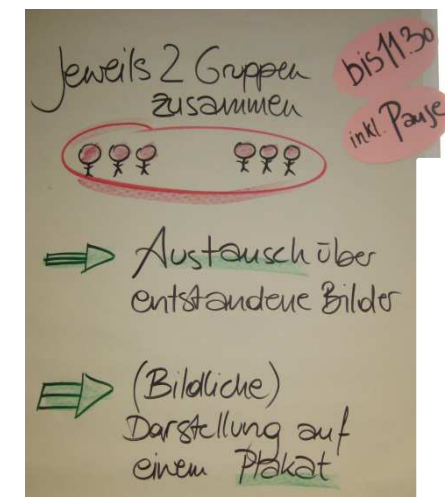 Jeweils 2 Gruppen
zusammen
bis 11³⁰
inkl. Pause
Austausch über
entstandene Bilder
(Bildliche)
Darstellung auf
einem Plakat